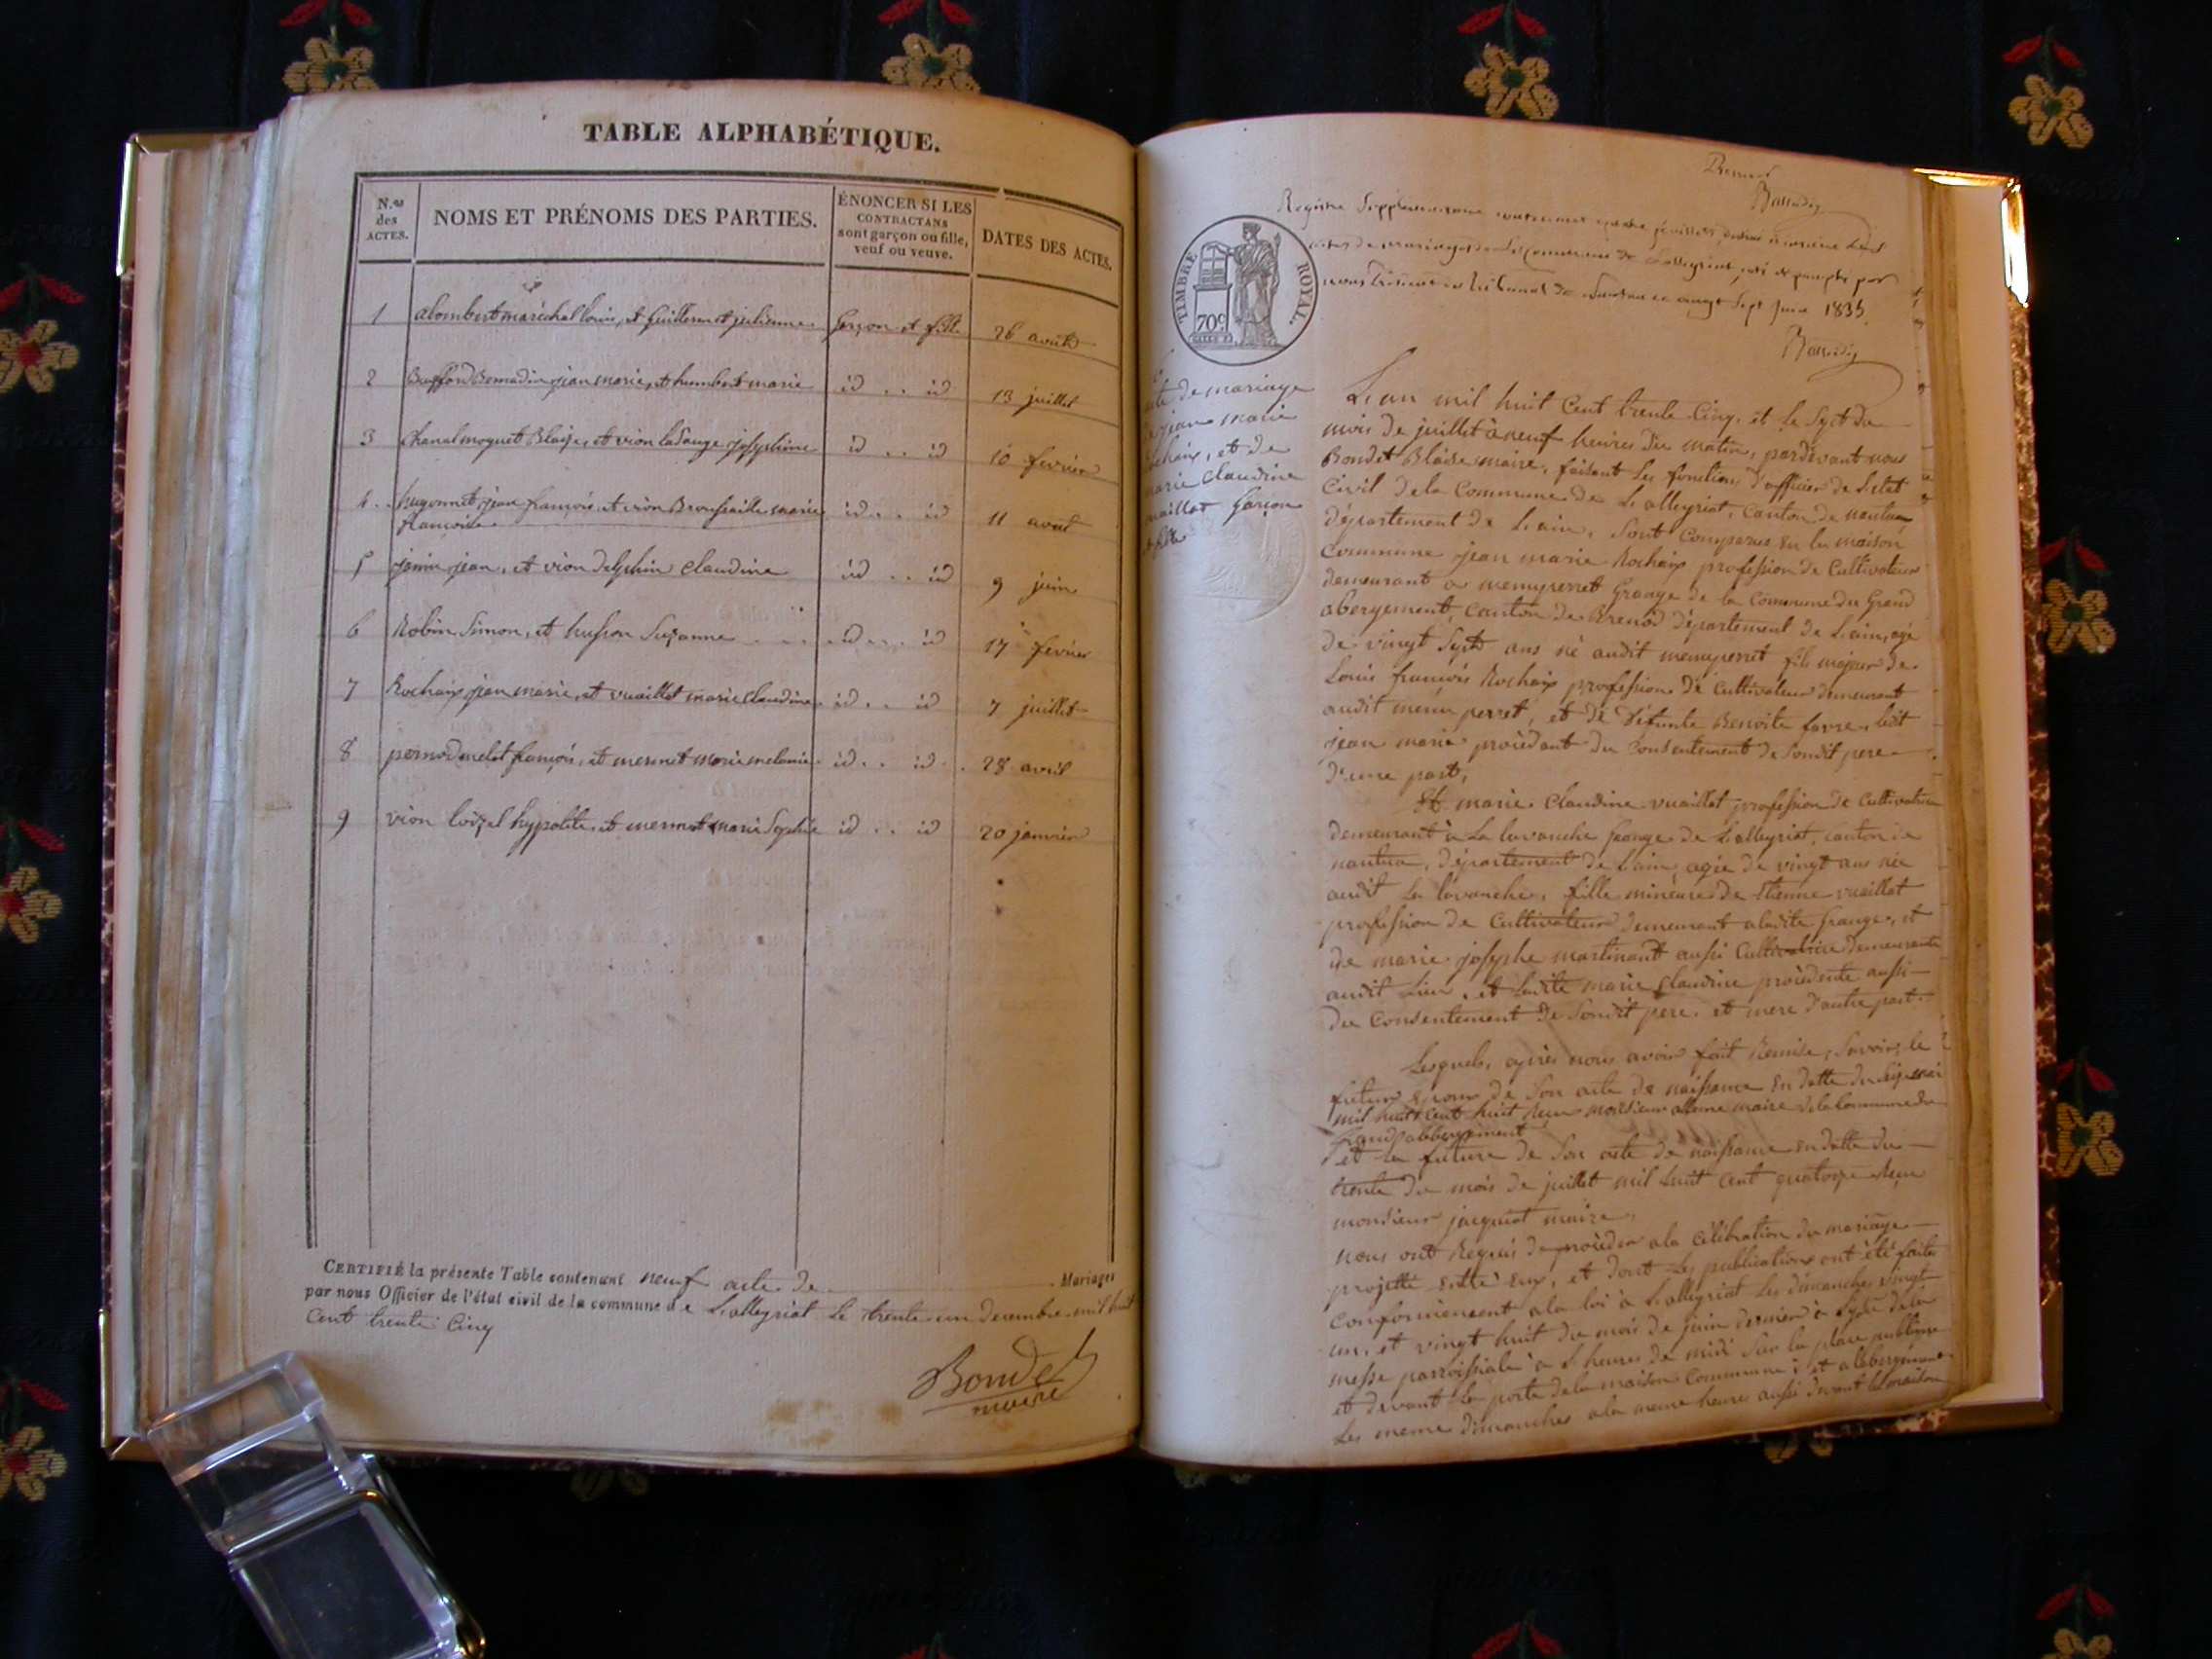 TABLE ALPHABÉTIQUE.
N.os des ACTES.
NOMS ET PRÉNOMS DES PARTIES.
ÉNONCER SI LES CONTRACTANS sont garçon ou fille, veuf ou veuve.
DATES DES ACTES.
1 alombert maréchal louis, et guillermet julienne garçon et fille 26 août
2 Buffard Bornadin jean marie, et humbert marie id .. id 13 juillet
3 Chanal moquet Blaise, et vion lasauge josephine id .. id 10 fevrier
4 .. hugonnet jean françois, et vion Broussaille marie id .. id 11 août
françoise
5 janin jean, et vion delphin Claudine id .. id 9 juin
6 Robin Simon, et husson Suzanne id .. id 17 février
7 Rochaix jean marie, et vuaillat marie Claudine id .. id 7 juillet
8 pernod melet françois, et mermet marie melanie id .. id 28 avril
9 vion loizel hypolite, et mermet marie Sophie id .. id 20 janvier
CERTIFIÉ la présente Table contenant neuf acte de Mariages
par nous Officier de l'état civil de la commune de Lalleyriat le trente un decembre mil huit
Cent trente Cinq
Bondet
maire
Registre Supplémentaire contenant quatre feuillets
actes de mariages de la commune de Lalleyriat, coté et paraphé par
nous Président du tribunal de Nantua ce vingt Sept Juin 1835.
TIMBRE ROYAL.
70c
acte de mariage
de jean marie
Rochaix, et de
marie Claudine
vuaillat garçon
et fille
L'an mil huit Cent trente Cinq, et le Sept du
mois de juillet à neuf heures du matin, pardevant nous
Bondet Blaise maire, faisant les fonctions d'officier de L'etat
Civil de la Commune de Lalleyriat, Canton de nantua
département de L'ain, Sont Comparus en la maison
Commune jean marie Rochaix profession de Cultivateur
demeurant a menuperret Grange de la Commune du Grand
abergement, canton de Brenod département de L'ain, agé
de vingt Sept ans né audit menuperret fils majeur de
Louis françois Rochaix profession de Cultivateur demeurant
audit menu perret, et de Défunte Benoite favre, ledit
jean marie procédant du Consentement de Sondit pere
d'une part,
Et marie Claudine vuaillat profession de Cultivatrice
demeurant à La lavanche Grange de Lalleyriat, canton de
nantua, département de L'ain, agée de vingt ans née
audit La lavanche, fille mineure de Etienne vuaillat
profession de Cultivateur demeurant aladite Grange, et
de marie josephe martinant aussi Cultivatrice demeurante
audit Lieu, et Ladite marie Claudine procédente aussi
du Consentement de Sondit pere, et mere d'autre part.
Lesquels, après nous avoir fait Remise, Savoir, le
futur Epoux de Son acte de naissance En datte du Six mai
mil huit cent huit Reçu monsieur allerme maire de la Commune du
Grand abbergement
et la future de Son acte de naissance en datte du
trente du mois de juillet mil huit Cent quatorze Reçu
monsieur jacquiot maire,
nous ont Requis de procéder a la Célébration du mariage
projetté Entre Eux, et dont Les publications ont été faites
Conformément a la loi à Lalleyriat Les dimanches vingt
un, et vingt huit du mois de juin dernier à l'issue de la
messe parroissiale à heures de midi Sur la place publique
et devant La porte de la maison Commune; et a labergement
Les meme dimanches a la meme heure aussi devant la maison